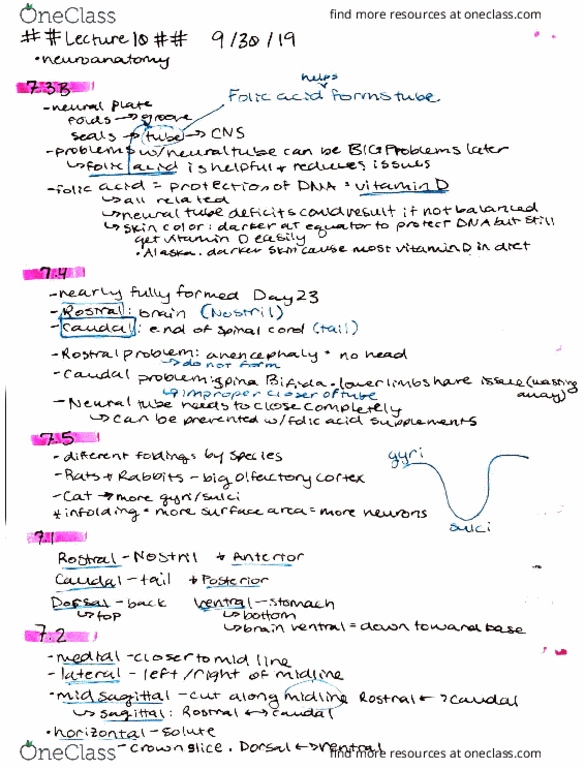 OneClass find more resources at oneclass.com
##Lecture 10## 9/30/19
•neuroanatomy
7.3B
-neural plate
folds → groove
seals → tube → CNS
helps
Folic acid forms tube
-problems w/neural tube can be BIG problems later
↳folic acid is helpful + reduces issues
-folic acid = protection of DNA = vitamin D
↳all related
↳neural tube deficits could result if not balanced
↳skin color: darker at equator to protect DNA but still
get vitamin D easily
•Alaska: darker skin cause most vitamin D in diet
7.4
-nearly fully formed Day 23
-Rostral: brain (Nostril)
-caudal: end of spinal cord (tail)
-Rostral problem: anencephaly • no head
↳do not form
-caudal problem: spina Bifida • lower limbs have issue (wasting
away)
↳improper closer of tube
-Neural tube needs to close completely
↳can be prevented w/folic acid supplements
7.5
-different foldings by species
-Rats + Rabbits - big olfactory cortex
-Cat → more gyri/sulci
* infolding = more surface area = more neurons
gyri
sulci
7.1
Rostral - Nostril * Anterior
Caudal - tail * Posterior
Dorsal - back ventral - stomach
↳top ↳bottom
↳brain ventral = down toward base
7.2
-medial - closer to mid line
-lateral - left/right of midline
-mid sagittal - cut along midline Rostral ↔ caudal
↳sagittal: Rostral ↔ caudal
•horizontal - solute
-crown slice • Dorsal ↔ ventral
OneClass find more resources at oneclass.com